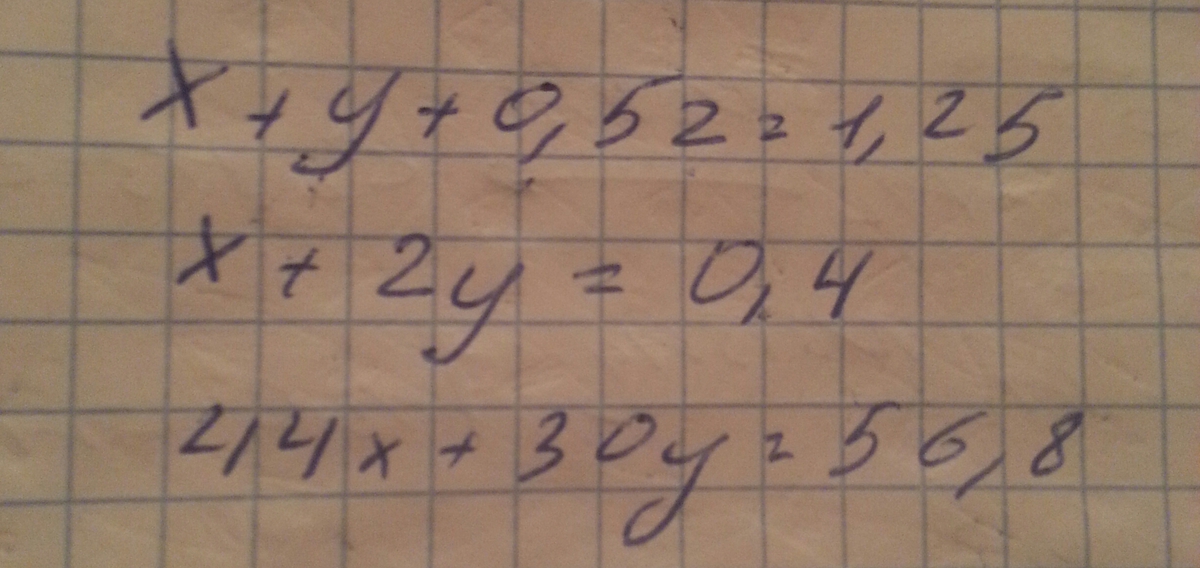 x + y + 0,5z = 1,25
x + 2y = 0,4
44x + 30y = 56,8